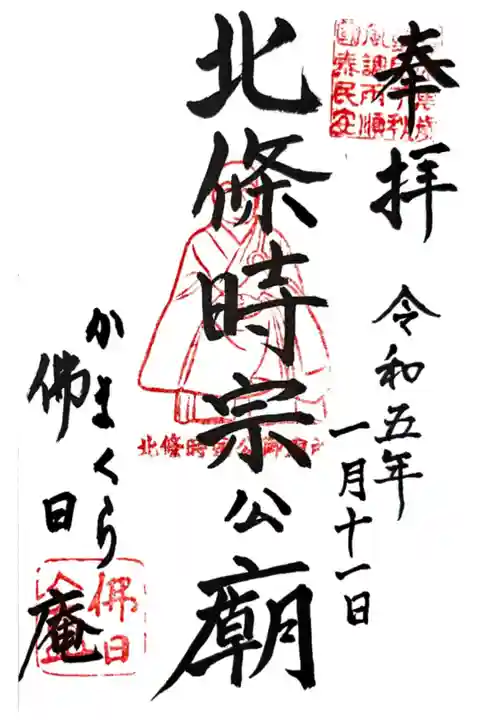 奉拝
令和五年
一月十一日
北條時宗公廟
かまくら
佛日庵
風調雨順
國泰民安
佛日